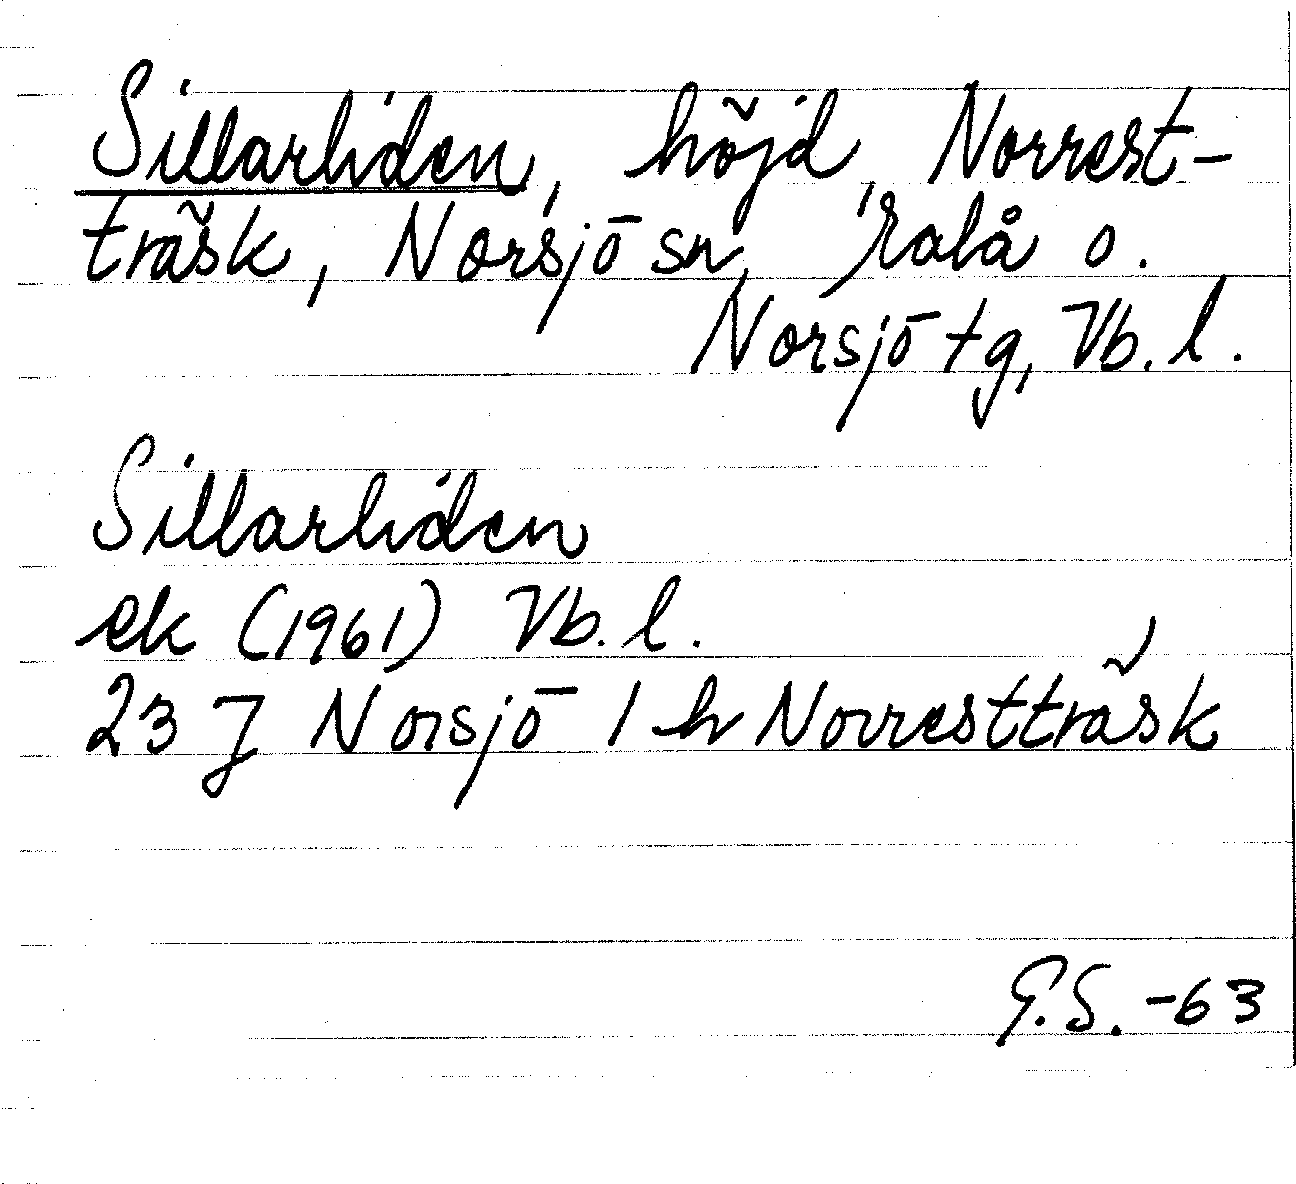 Sillarliden, höjd, Norrest-
träsk, Norsjö sn, Malå o.
Norsjö tg, Vb. l.
Sillarliden
ek (1961) Vb. l.
23 J Norsjö 1 h Norrestträsk
G.S. -63